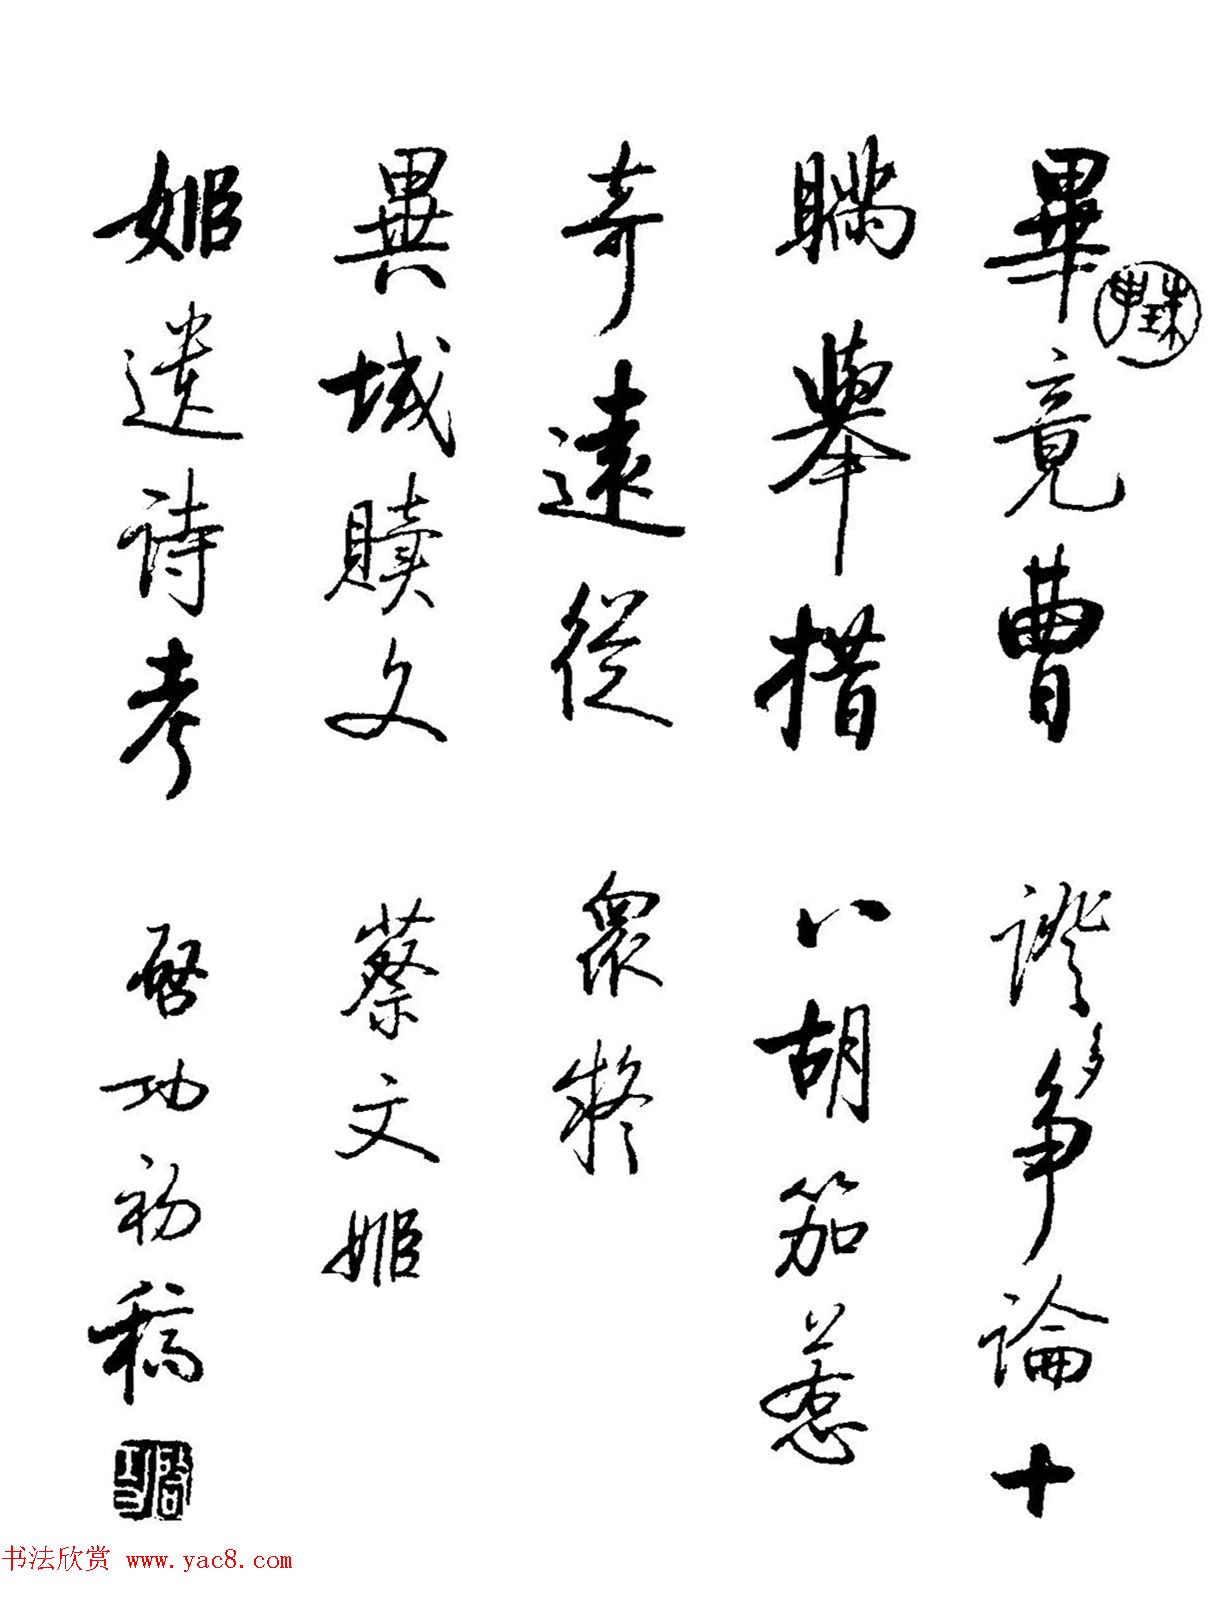 珠申
畢竟曹
瞞舉措
奇遠從
異域贖文
姬遺詩考
證多爭論十
八胡笳惹
衆疑
蔡文姬
啓功初稿
啓功
书法欣赏 www.yac8.com